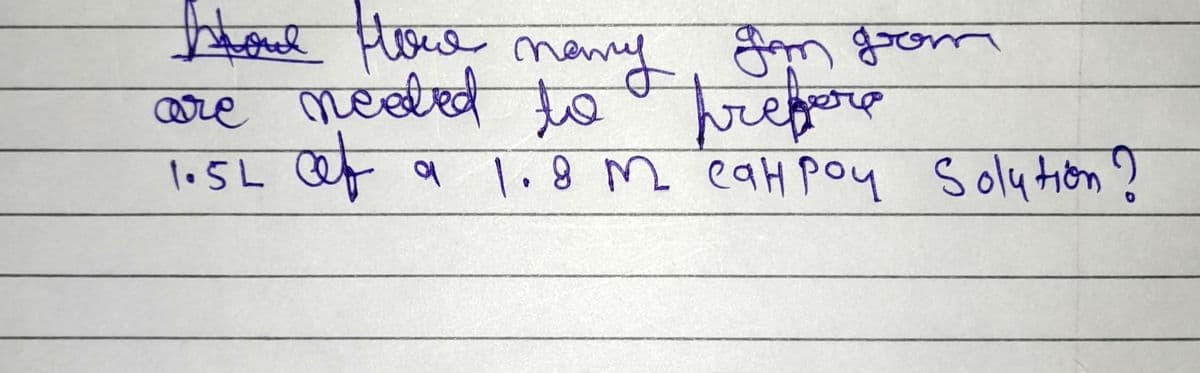 How many gm grom
are needed to prepare
1.5L of a 1.8 M CaHPO4 Solution?